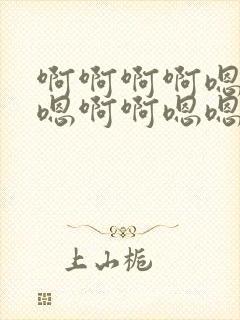 啊啊啊啊嗯
嗯啊啊嗯嗯
上山栀